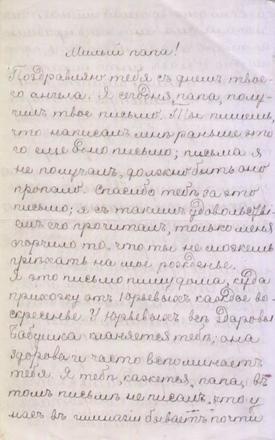 Милый папа!
Поздравляю тебя съ днемъ твое-
го ангела. Я сегодня, папа, полу-
чилъ твое письмо. Ты пишешь,
что написалъ мнѣ раньше это-
го еще одно письмо; письма я
не получалъ, должно быть оно
пропало. Спасибо тебѣ за это
письмо; я съ такимъ удовольстві-
емъ его прочиталъ, только меня
огорчило то, что ты не можешь
пріѣхать на мое рожденье.
Я это письмо пишу дома, куда
прихожу отъ Юрьевыхъ каждое во-
скресенье. У Юрьевыхъ всѣ здоровы.
Бабушка кланяется тебѣ; она
здорова и часто вспоминаетъ
тебя. Я тебѣ, кажется, папа, въ
томъ письмѣ не писалъ, что у
насъ въ гимназіи бываетъ почти